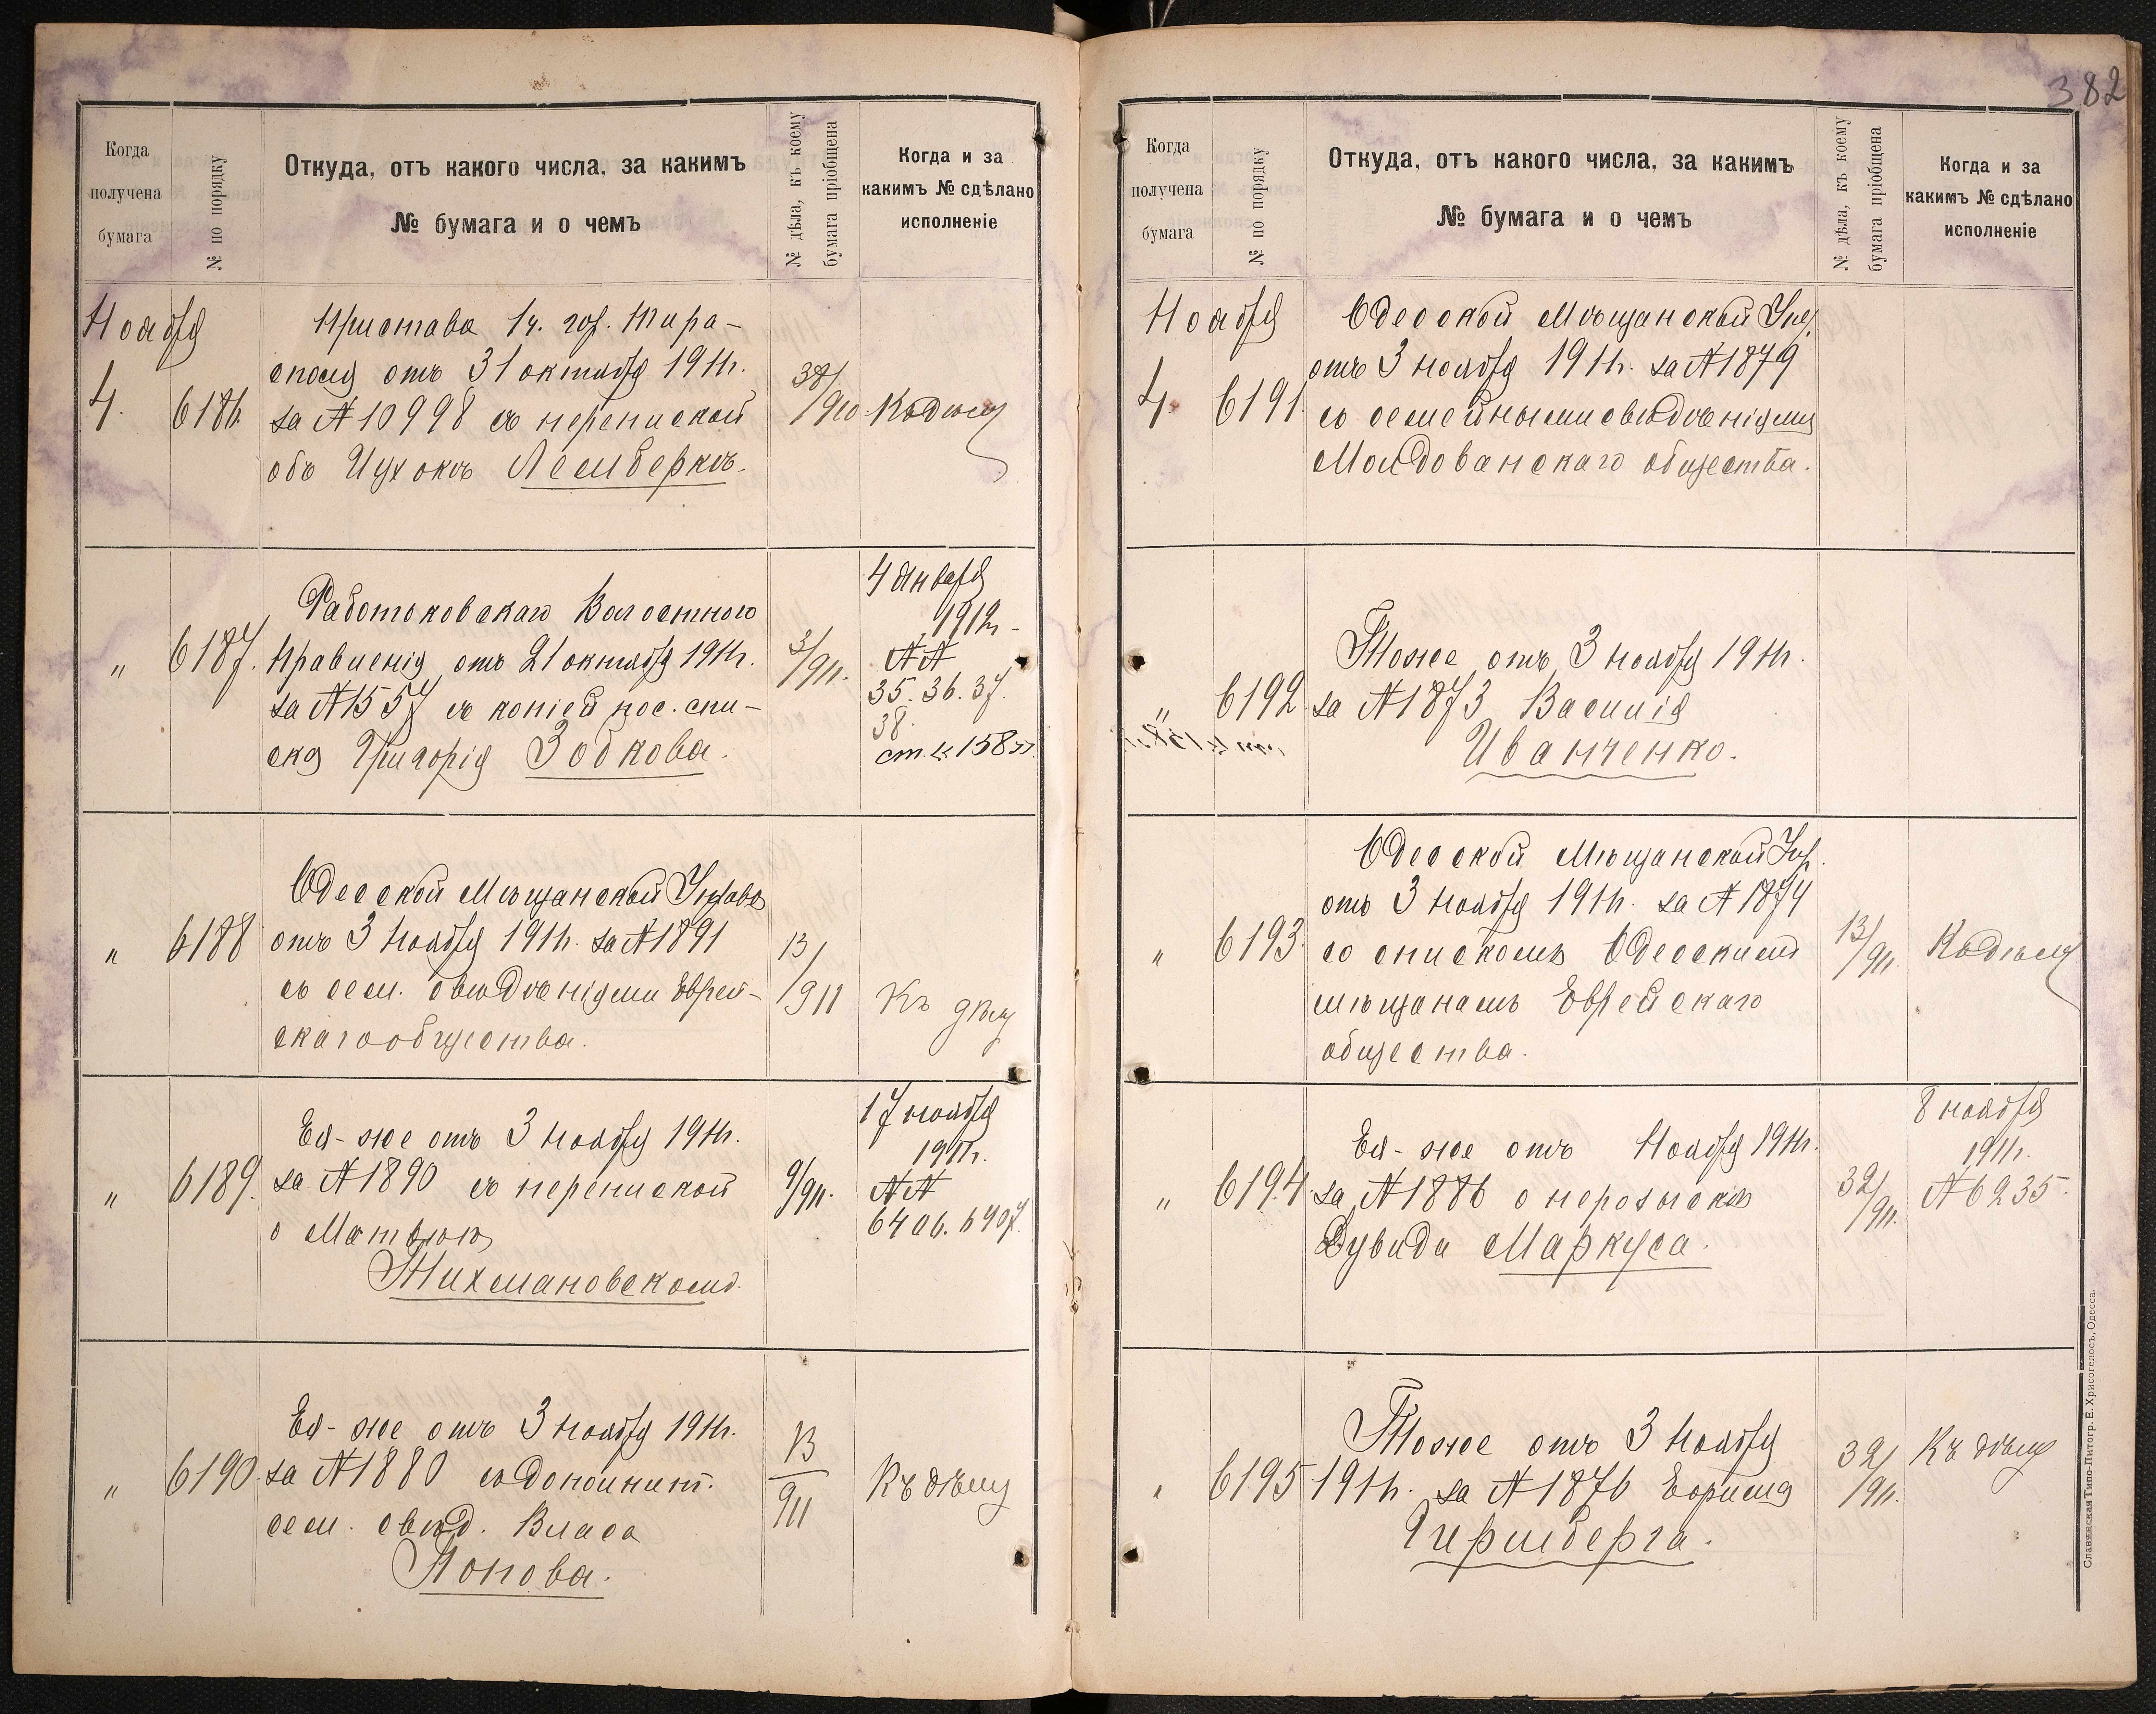 382
Когда
получена
бумага
№ по порядку
Откуда, отъ какого числа, за какимъ
№ бумага и о чемъ
№ дѣла, къ коему
бумага пріобщена
Когда и за
какимъ № сдѣлано
исполненіе
Ноября
4.
6186.
Пристава 1ч. гор. Тира-
споля отъ 31 октября 1911г.
за № 10998 съ перепиской
объ Цухокъ Лемберкъ.
38/910
Къ дѣлу
"
6187.
Работковскаго Волостного
Правленія отъ 21 октября 1911г.
за № 1557 съ копіей пос. спи-
ска Григорія Зобкова.
3/911.
4 Января
1912г.
№№
35. 36. 37.
38.
"
6188
Одесской Мѣщанской Управы
отъ 3 Ноября 1911г. за № 1891
съ сем. свидѣніями Еврей-
скаго общества.
13/911
Къ дѣлу
"
6189.
Ея-же отъ 3 Ноября 1911г.
за № 1890 съ перепиской
о Матвѣѣ
Тихмановскомъ.
9/911.
17 ноября
1911г.
№№
6406. 6407.
"
6190.
Ея-же отъ 3 Ноября 1911г.
за № 1880 съ дополнит.
сем. свид. Власа
Попова.
13/911
Къ дѣлу
Когда
получена
бумага
№ по порядку
Откуда, отъ какого числа, за какимъ
№ бумага и о чемъ
№ дѣла, къ коему
бумага пріобщена
Когда и за
какимъ № сдѣлано
исполненіе
Ноября
4.
6191.
Одесской Мѣщанской Упр.
отъ 3 ноября 1911г. за № 1879
со семейными свидѣніями
Молдованскаго общества.
"
6192.
Тоже отъ 3 ноября 1911г.
за № 1873 Василія
Иванченко.
"
6193.
Одесской Мѣщанской Упр.
отъ 3 Ноября 1911г. за № 1874
со спискомъ Одесскимъ
мѣщанамъ Еврейскаго
общества.
13/911.
Къ дѣлу
"
6194
Ея-же отъ Ноября 1911г.
за № 1886 о нерозыскѣ
Дувида Маркуса.
32/911.
8 ноября
1911г.
№ 6235.
"
6195
Тоже отъ 3 Ноября
1911г. за № 1876
Гиршберга.
32/911.
Къ дѣлу
Славянская Типо-Литогр. Е. Хрисогелосъ, Одесса.